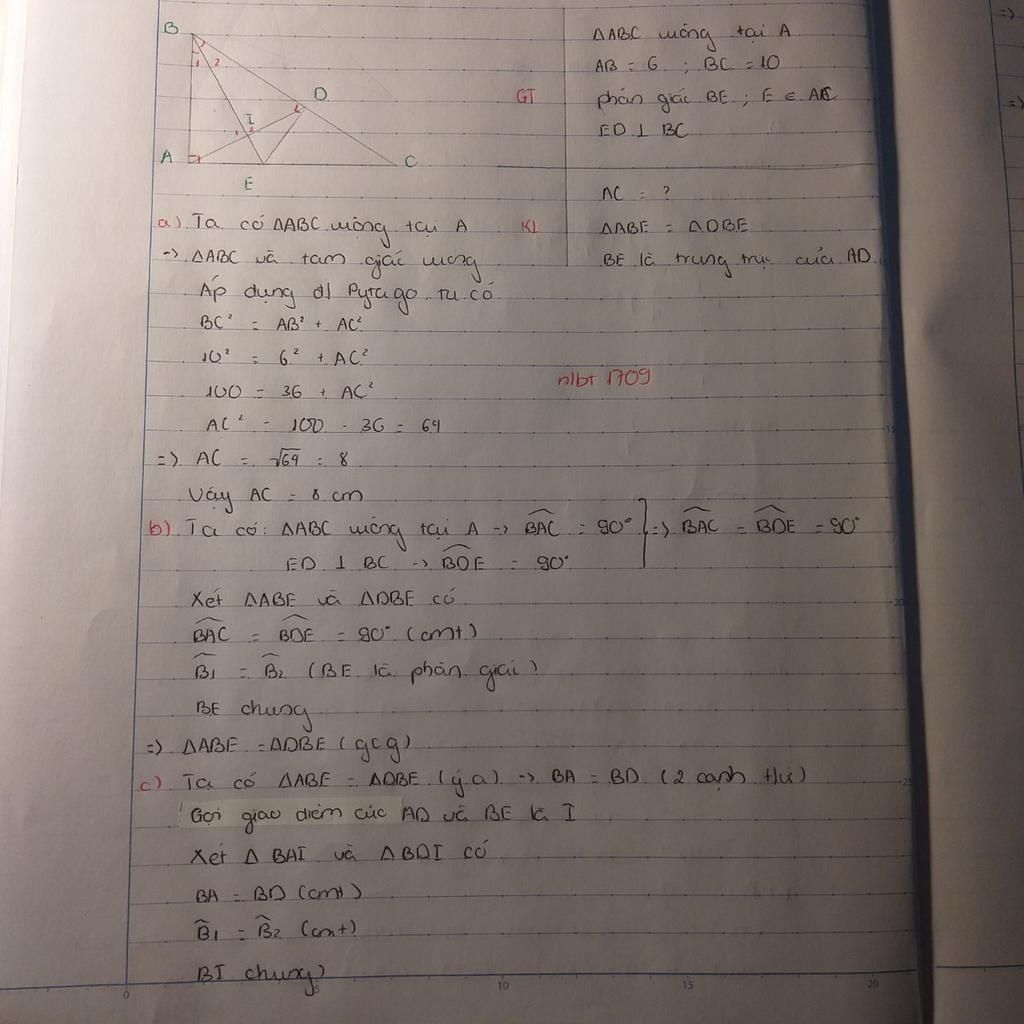 B
1 2
D
I
1 2
A
C
E
GT
ΔABC vuông tại A
AB = 6 ; BC = 10
phân giác BE ; E ∈ AC
ED ⊥ BC
KL
AC = ?
ΔABE = ΔDBE
BE là trung trực của AD
a) Ta có ΔABC vuông tại A
-> ΔABC và tam giác vuông
Áp dụng đl Pytago ta có
BC² = AB² + AC²
10² = 6² + AC²
100 = 36 + AC²
nlbt 1709
AC² = 100 - 36 = 64
=> AC = √64 = 8
Vậy AC = 8 cm
b) Ta có: ΔABC vuông tại A -> \widehat{BAC} = 90° => \widehat{BAC} = \widehat{BDE} = 90°
ED ⊥ BC -> \widehat{BDE} = 90°
Xét ΔABE và ΔDBE có
\widehat{BAC} = \widehat{BDE} = 90° (cmt)
\widehat{B}₁ = \widehat{B}₂ (BE là phân giác)
BE chung
=> ΔABE = ΔDBE (gcg)
c) Ta có ΔABE = ΔDBE (ý a) -> BA = BD (2 cạnh t/ư)
Gọi giao điểm của AD và BE là I
Xét Δ BAI và Δ BDI có
BA = BD (cmt)
\widehat{B}₁ = \widehat{B}₂ (cmt)
BI chung
0 5 10 15 20